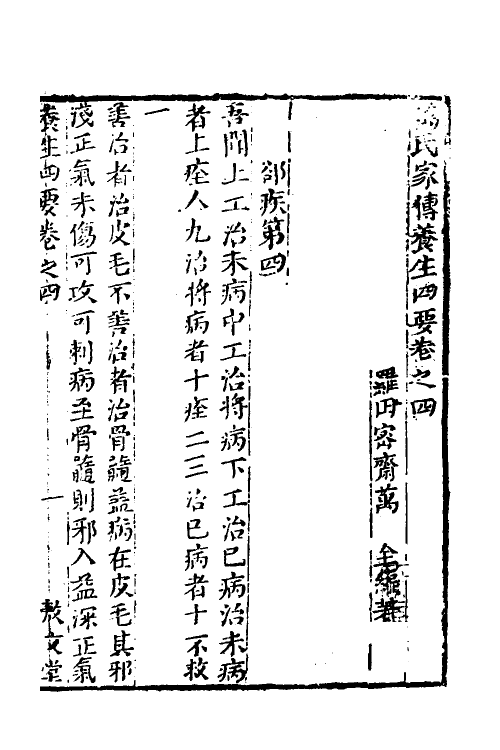 萬氏家傳養生四要卷之四
羅田密齋萬　全編著
郤疾第四
吾聞上工治未病中工治將病下工治已病治未病
者上痊人九治將病者十痊二三治已病者十不救
一
善治者治皮毛不善治者治骨髓葢病在皮毛其邪
淺正氣未傷可攻可刺病至骨髓則邪入益深正氣
養生四要卷之四　一　敷文堂